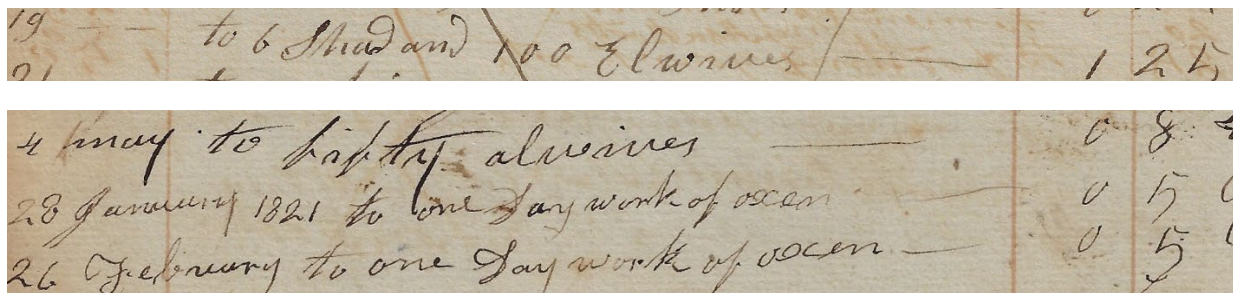 19 — to 6 Shad and 100 Elwives — 1 25
4 may to fifty alwives — 0 8 4
28 January 1821 to one Day work of oxen — 0 5 0
26 February to one Day work of oxen — 0 5 0